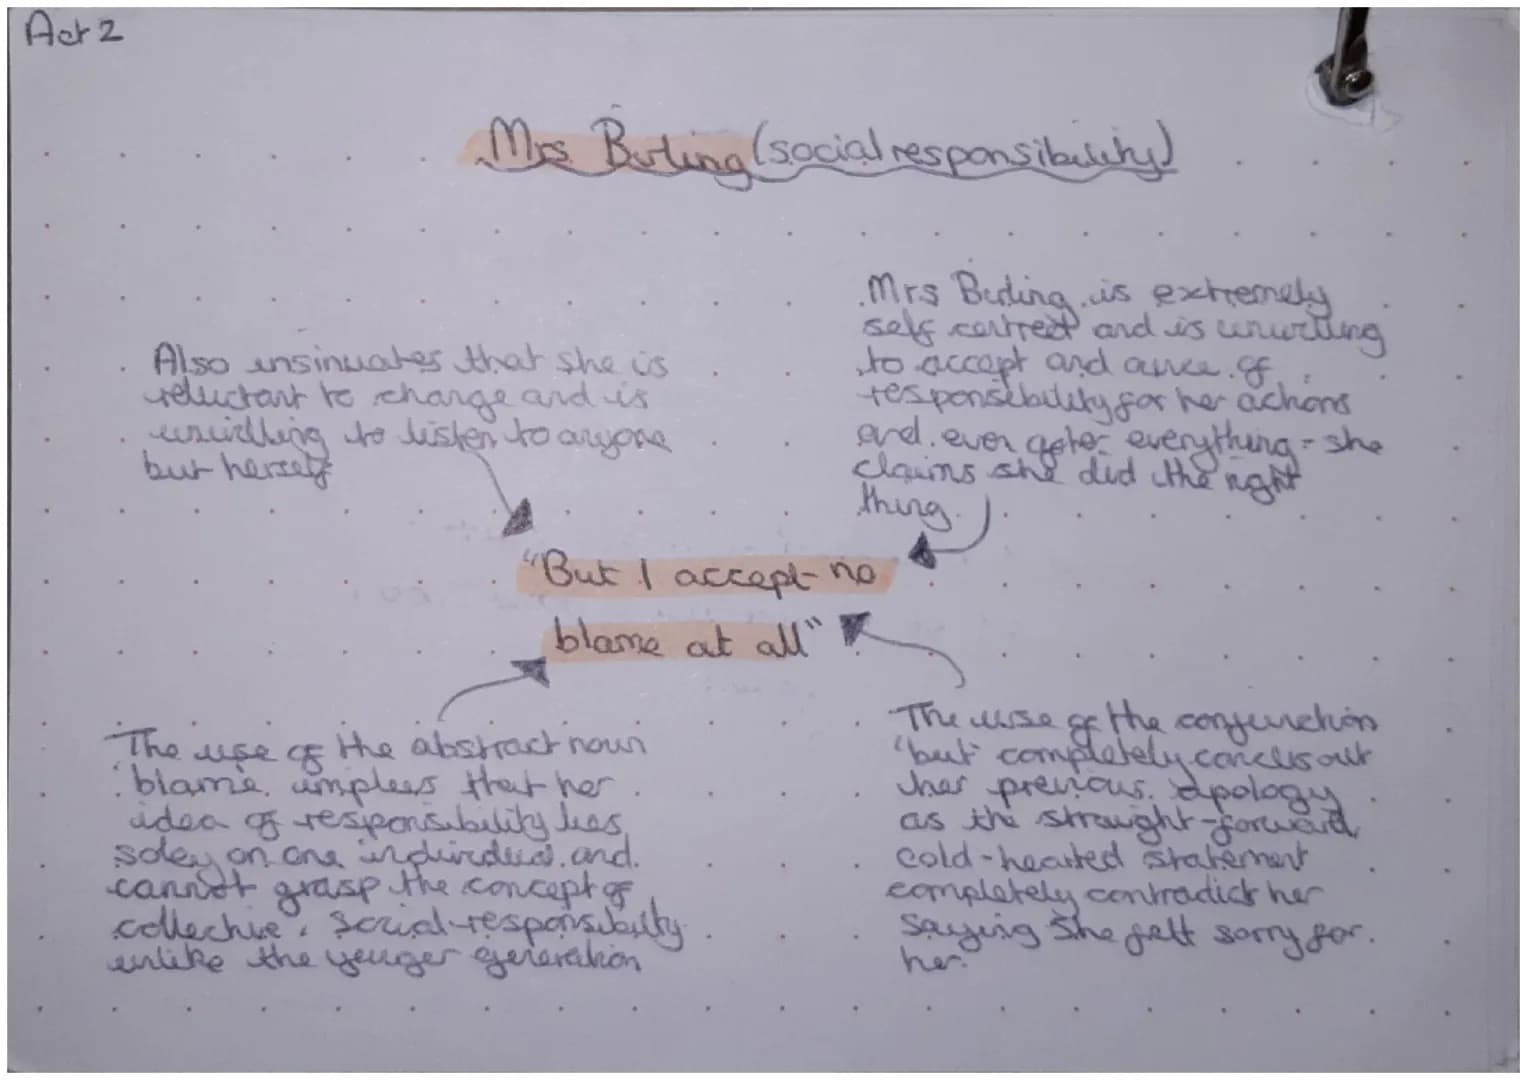 Act 2
Mrs Birling (social responsibility)
Mrs Birling is extremely
self centred and is unwilling
to accept and ounce of
responsibility for her actions
and even after everything - she
claims she did the right
thing.
Also insinuates that she is
reluctant to change and is
unwilling to listen to anyone
but herself
"But I accept no
blame at all"
The use of the abstract noun
'blame' implies that her
idea of responsibility lies
soley on one individual and
cannot grasp the concept of
collective, social-responsibility
unlike the younger generation
The use of the conjunction
'but' completely cancels out
her previous apology
as the straight-forward,
cold-hearted statement
completely contradict her
saying she felt sorry for
her.